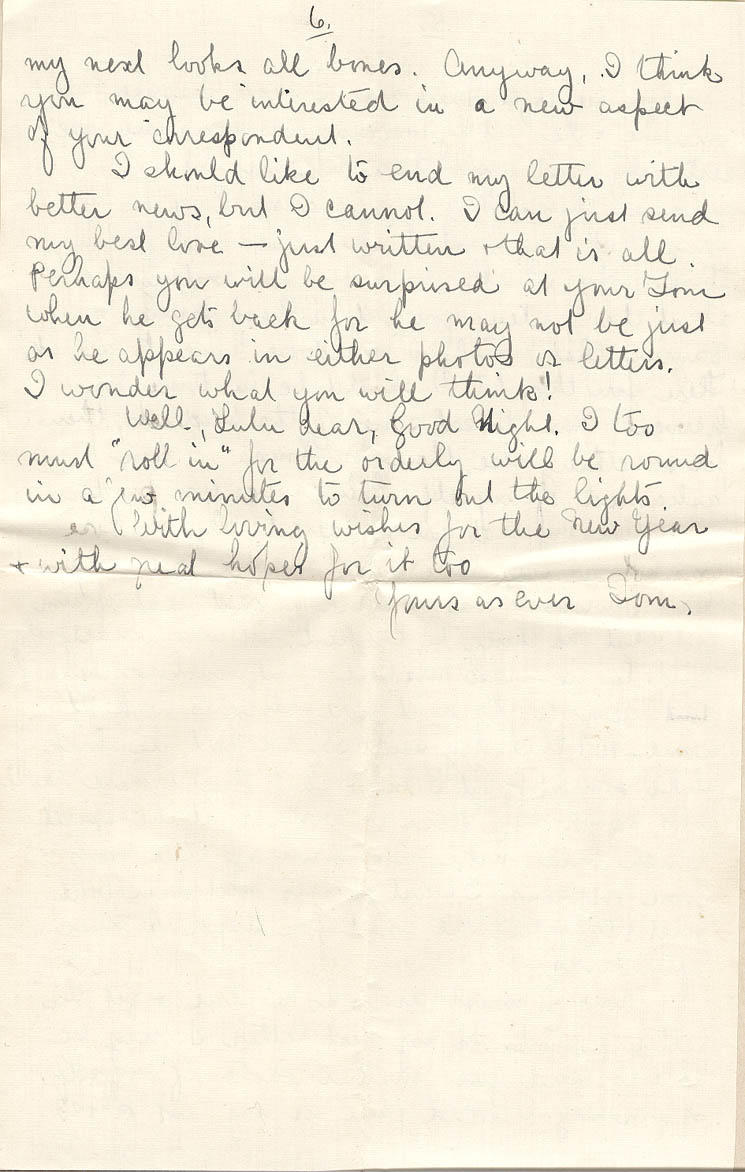 6.
my next looks all bones. Anyway, I think
you may be interested in a new aspect
of your correspondent.
I should like to end my letter with
better news, but I cannot. I can just send
my best love — just written & that is all.
Perhaps you will be surprised at your Tom
when he gets back for he may not be just
as he appears in either photos or letters.
I wonder what you will think!
Well, Lulu dear, Good Night. I too
must "roll in" for the orderly will be round
in a few minutes to turn out the lights.
With loving wishes for the New Year
& with real hopes for it too
Yours as ever Tom.